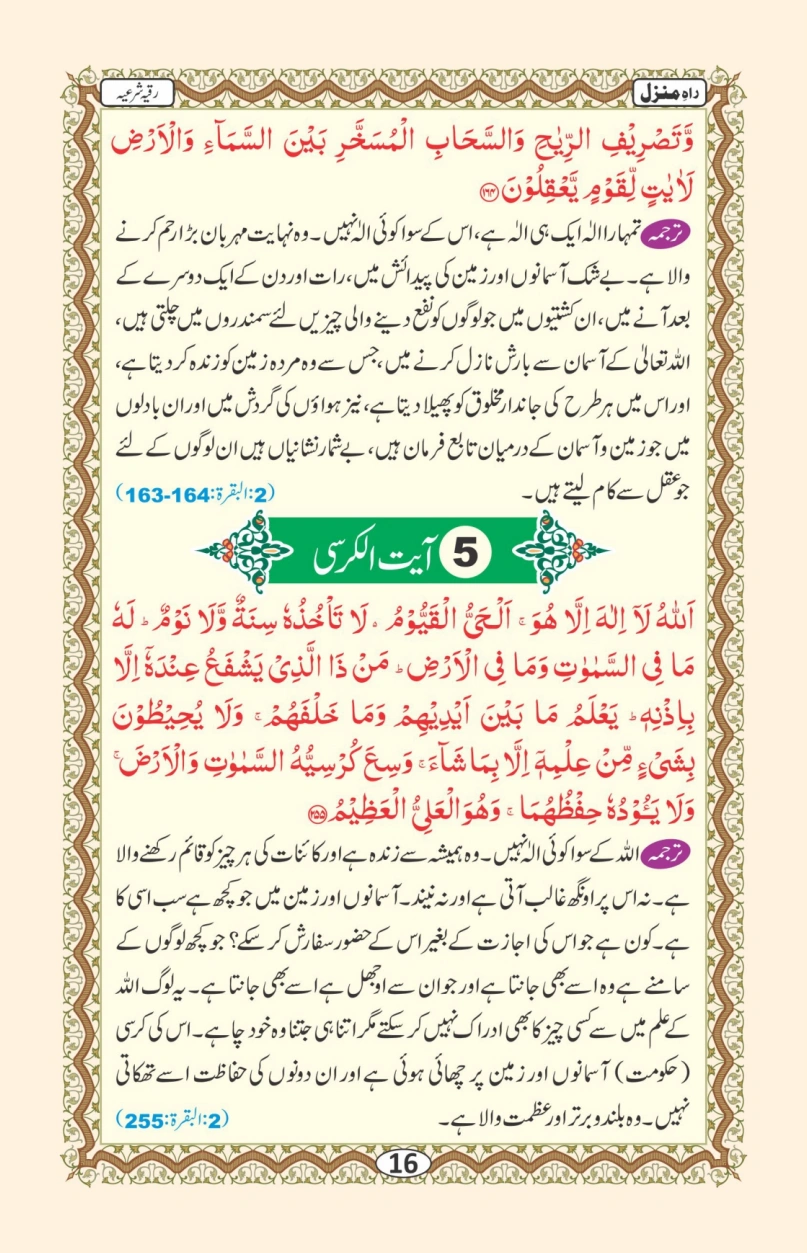 راہِ منزل
رقیہ شرعیہ
وَّتَصْرِيْفِ الرِّيٰحِ وَالسَّحَابِ الْمُسَخَّرِ بَيْنَ السَّمَآءِ وَالْاَرْضِ
لَاٰيٰتٍ لِّقَوْمٍ يَّعْقِلُوْنَ ﴿۱۶۴﴾
ترجمہ تمہارا الٰہ ایک ہی الٰہ ہے، اس کے سوا کوئی الٰہ نہیں۔ وہ نہایت مہربان بڑا رحم کرنے
والا ہے۔ بے شک آسمانوں اور زمین کی پیدائش میں، رات اور دن کے ایک دوسرے کے
بعد آنے میں، ان کشتیوں میں جو لوگوں کو نفع دینے والی چیزیں لئے سمندروں میں چلتی ہیں،
اللہ تعالیٰ کے آسمان سے بارش نازل کرنے میں، جس سے وہ مردہ زمین کو زندہ کر دیتا ہے،
اور اس میں ہر طرح کی جاندار مخلوق کو پھیلا دیتا ہے، نیز ہواؤں کی گردش میں اور ان بادلوں
میں جو زمین و آسمان کے درمیان تابع فرمان ہیں، بے شمار نشانیاں ہیں ان لوگوں کے لئے
جو عقل سے کام لیتے ہیں۔ (2:البقرة:164-163)
5 آیت الکرسی
اَللّٰهُ لَآ اِلٰهَ اِلَّا هُوَ ۚ اَلْحَيُّ الْقَيُّوْمُ ۚ لَا تَاْخُذُهٗ سِنَةٌ وَّلَا نَوْمٌ ؕ لَهٗ
مَا فِي السَّمٰوٰتِ وَمَا فِي الْاَرْضِ ؕ مَنْ ذَا الَّذِيْ يَشْفَعُ عِنْدَهٗٓ اِلَّا
بِاِذْنِهٖ ؕ يَعْلَمُ مَا بَيْنَ اَيْدِيْهِمْ وَمَا خَلْفَهُمْ ۚ وَلَا يُحِيْطُوْنَ
بِشَيْءٍ مِّنْ عِلْمِهٖٓ اِلَّا بِمَا شَآءَ ۚ وَسِعَ كُرْسِيُّهُ السَّمٰوٰتِ وَالْاَرْضَ ۚ
وَلَا يَـُٔوْدُهٗ حِفْظُهُمَا ۚ وَهُوَ الْعَلِيُّ الْعَظِيْمُ ﴿۲۵۵﴾
ترجمہ اللہ کے سوا کوئی الٰہ نہیں۔ وہ ہمیشہ سے زندہ ہے اور کائنات کی ہر چیز کو قائم رکھنے والا
ہے۔ نہ اس پر اونگھ غالب آتی ہے اور نہ نیند۔ آسمانوں اور زمین میں جو کچھ ہے سب اسی کا
ہے۔ کون ہے جو اس کی اجازت کے بغیر اس کے حضور سفارش کر سکے؟ جو کچھ لوگوں کے
سامنے ہے وہ اسے بھی جانتا ہے اور جو ان سے اوجھل ہے اسے بھی جانتا ہے۔ یہ لوگ اللہ
کے علم میں سے کسی چیز کا بھی ادراک نہیں کر سکتے مگر اتنا ہی جتنا وہ خود چاہے۔ اس کی کرسی
(حکومت) آسمانوں اور زمین پر چھائی ہوئی ہے اور ان دونوں کی حفاظت اسے تھکاتی
نہیں۔ وہ بلند و برتر اور عظمت والا ہے۔ (2:البقرة:255)
16